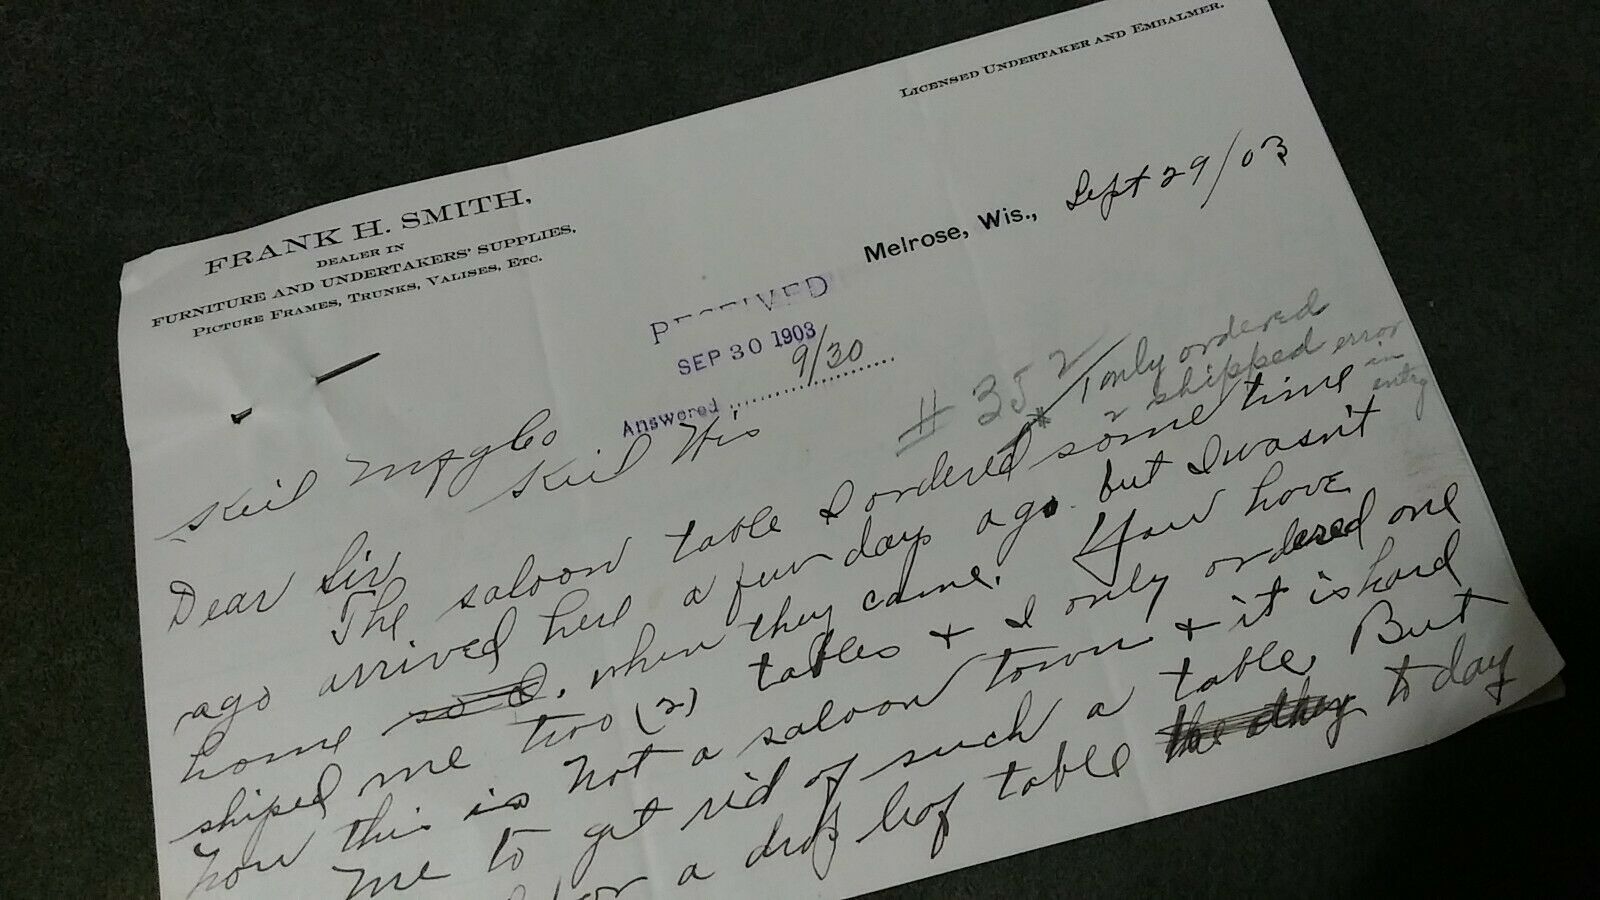 LICENSED UNDERTAKER AND EMBALMER.
FRANK H. SMITH,
DEALER IN
FURNITURE AND UNDERTAKERS' SUPPLIES,
PICTURE FRAMES, TRUNKS, VALISES, ETC.
Melrose, Wis., Sept 29/03
RECEIVED
SEP 30 1903
Answered 9/30
# 352 1 only ordered
2 shipped error
in
entry
Kiel Mfg Co
Kiel Wis
Dear Sir
The saloon table I ordered some time
ago arrived here a few days ago but I wasn't
home when they came. You have
shiped me two (2) tables + I only ordered one
now this is not a saloon town + it is hard
me to get rid of such a table. But
for a drop leaf table the other to day